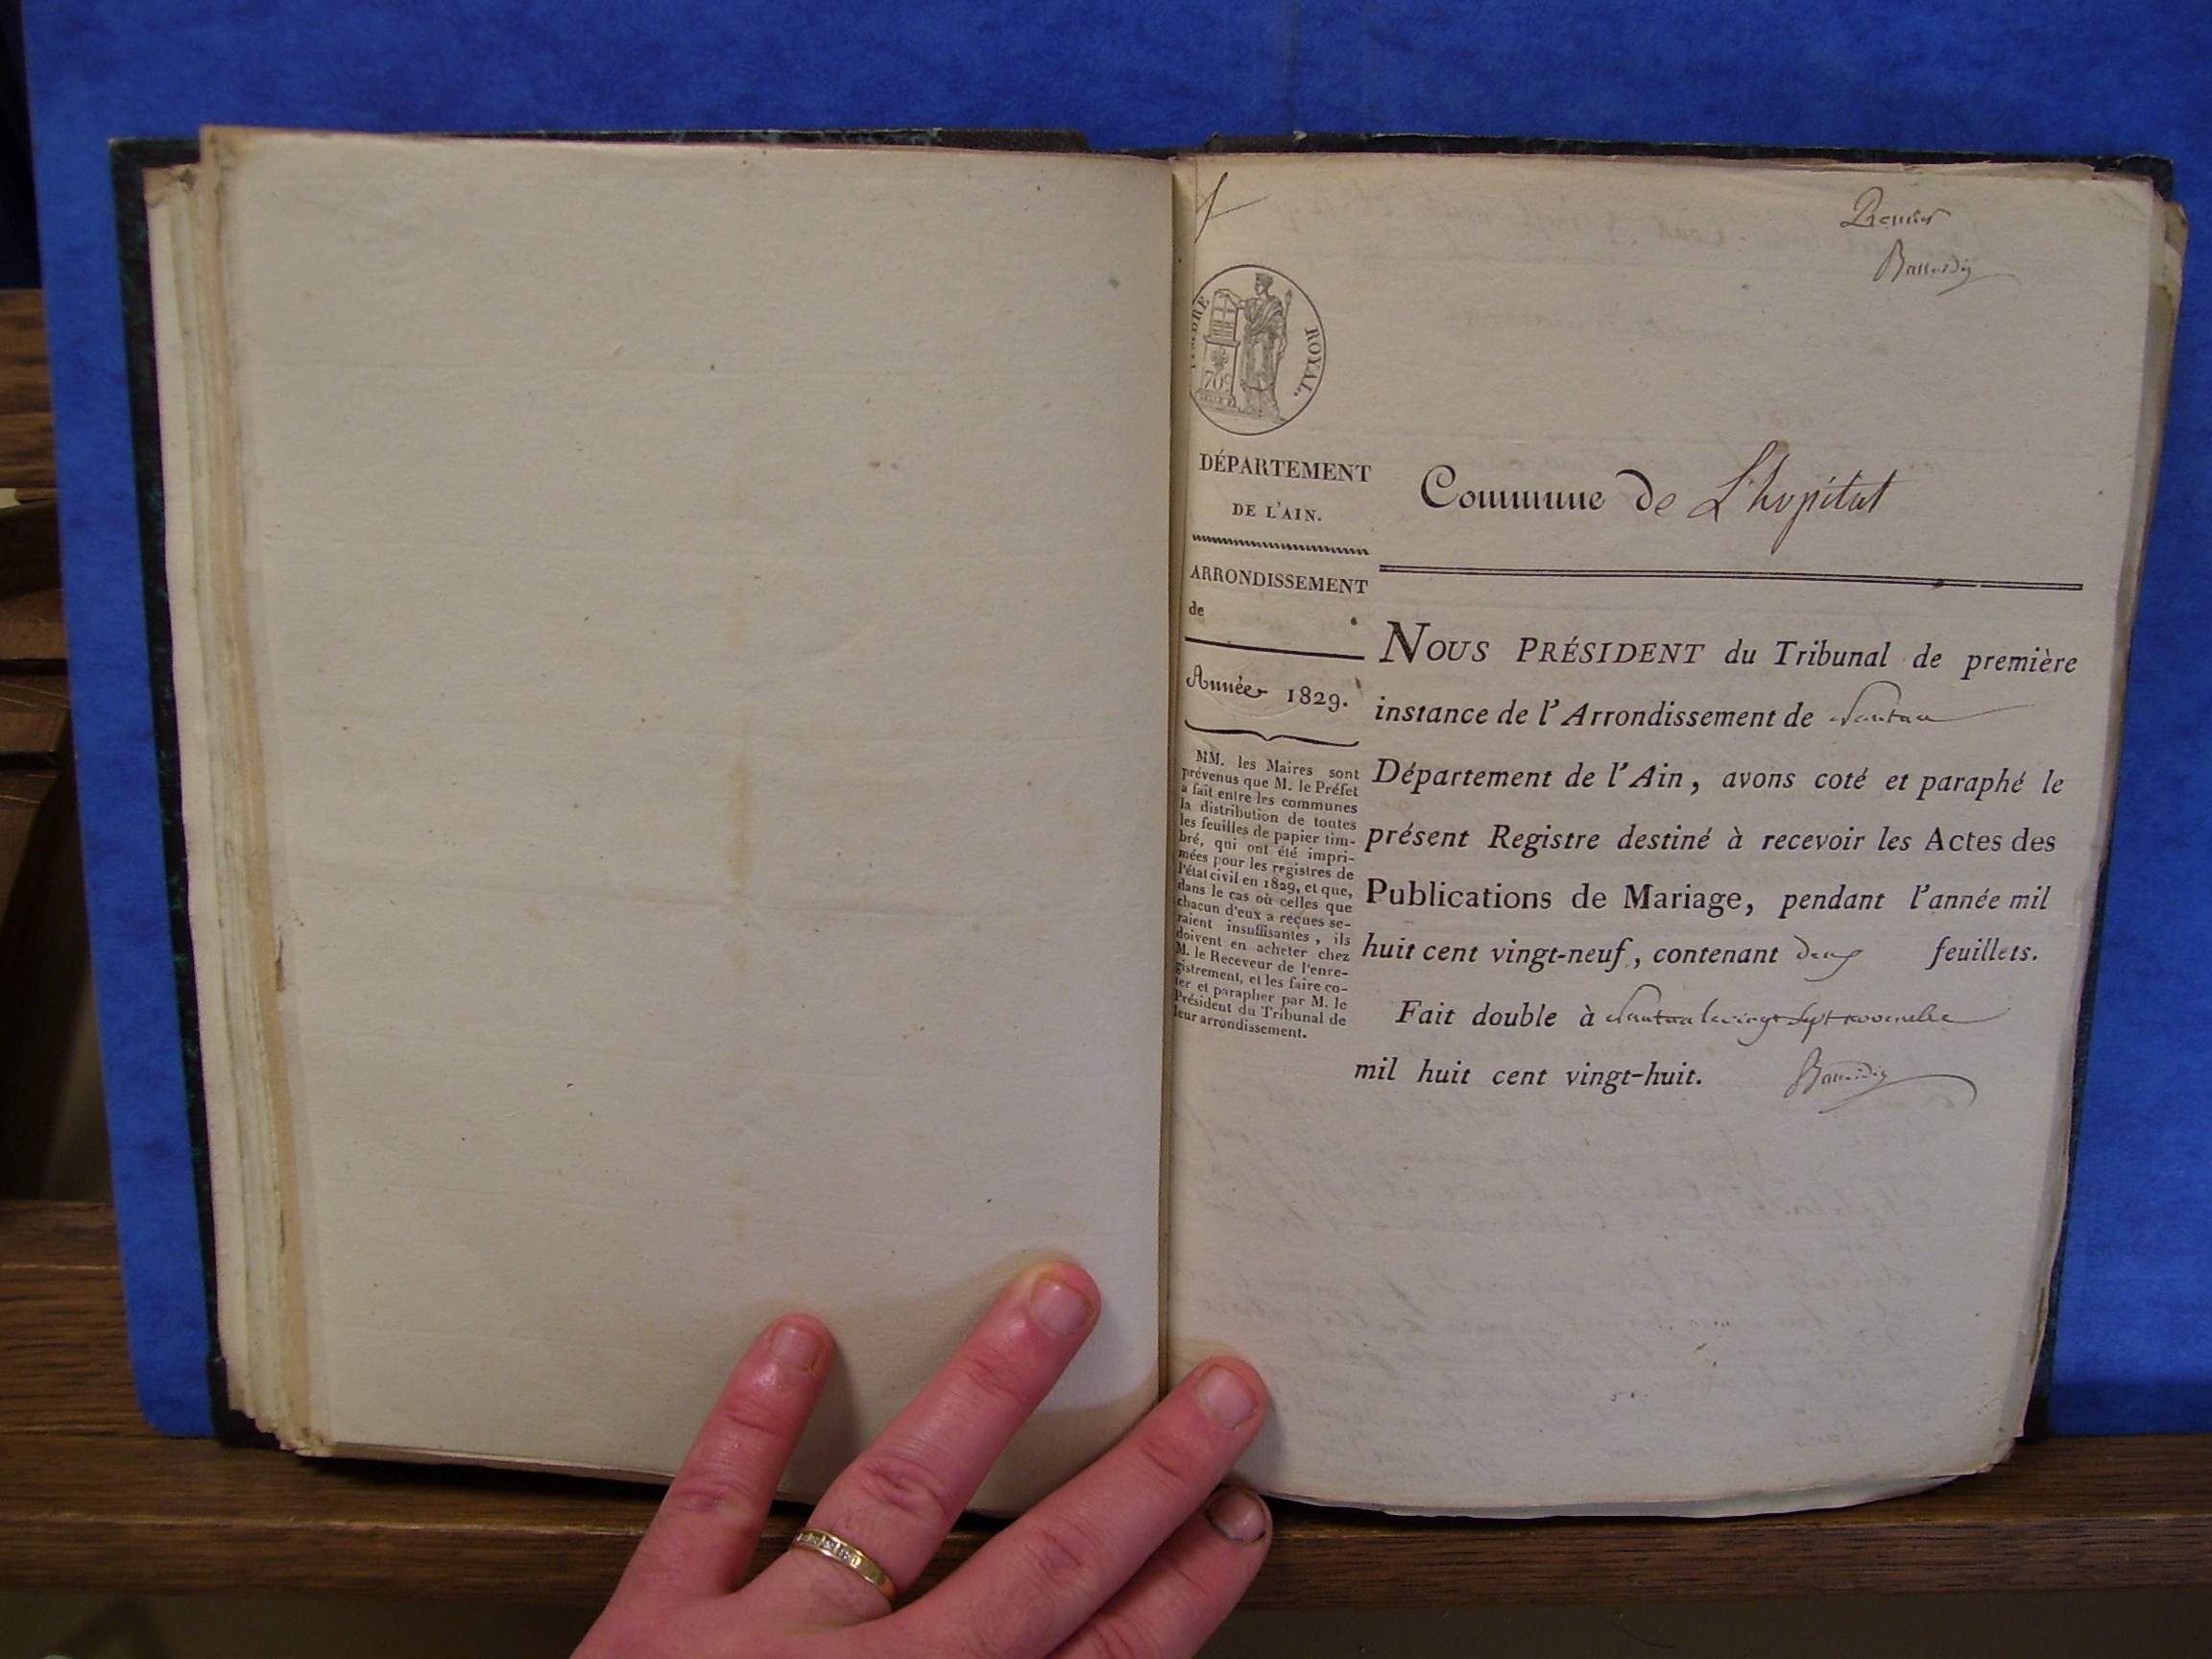 Premier
TIMBRE ROYAL.
70c
DÉPARTEMENT
DE L'AIN.
ARRONDISSEMENT
de
Année 1829.
MM. les Maires sont
prévenus que M. le Préfet
a fait entre les communes
la distribution de toutes
les feuilles de papier tim-
bré, qui ont été impri-
mées pour les registres de
l'état civil en 1829, et que,
dans le cas où celles que
chacun d'eux a reçues se-
raient insuffisantes, ils
doivent en acheter chez
M. le Receveur de l'enre-
gistrement, et les faire co-
ter et parapher par M. le
Président du Tribunal de
leur arrondissement.
Commune de L'hopital
NOUS PRÉSIDENT du Tribunal de première
instance de l'Arrondissement de Nantua
Département de l'Ain, avons coté et paraphé le
présent Registre destiné à recevoir les Actes des
Publications de Mariage, pendant l'année mil
huit cent vingt-neuf, contenant deux feuillets.
Fait double à Nantua le vingt sept novembre
mil huit cent vingt-huit.